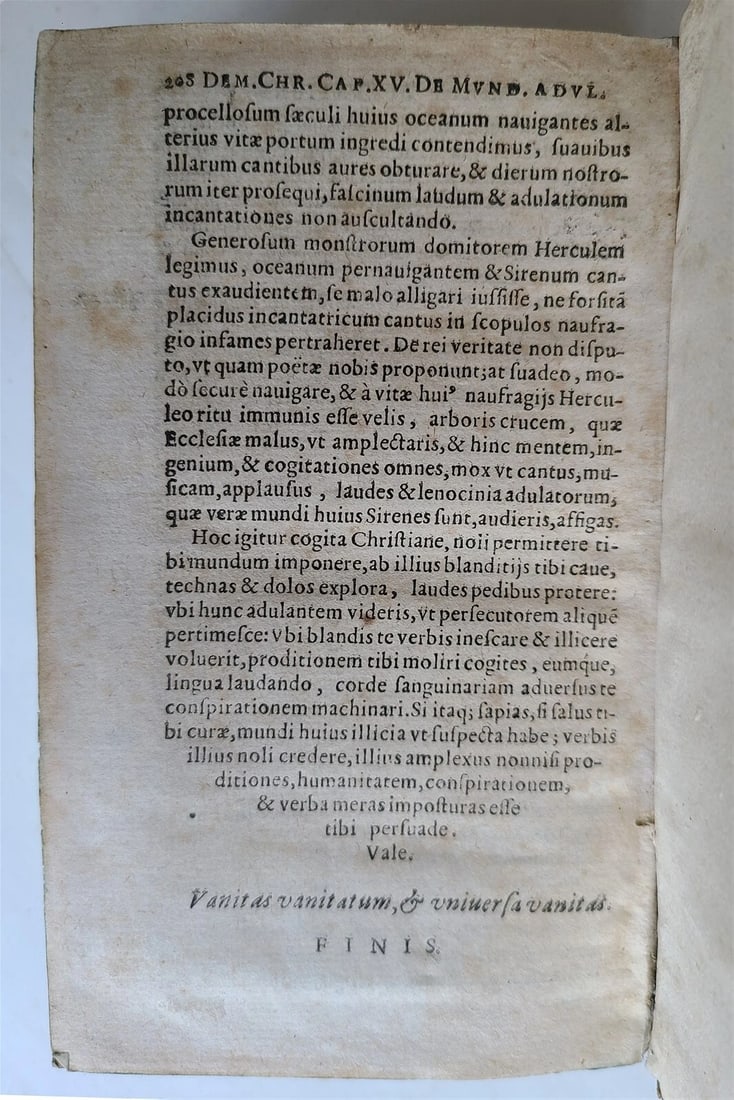 208 DEM. CHR. CAP. XV. DE MVND. ADVL.
procelloſum ſæculi huius oceanum nauigantes al-
terius vitæ portum ingredi contendimus, ſuauibus
illarum cantibus aures obturare, & dierum noſtro-
rum iter proſequi, faſcinum laudum & adulationum
incantationes non auſcultando.
Generoſum monſtrorum domitorem Herculem
legimus, oceanum pernauigantem & Sirenum can-
tus exaudientem, ſe malo alligari iuſſiſſe, ne forſitã
placidus incantatricum cantus in ſcopulos naufra-
gio infames pertraheret. De rei veritate non diſpu-
to, vt quam poëtæ nobis proponunt; at ſuadeo, mo-
dò ſecurè nauigare, & à vitæ huiꝰ naufragijs Hercu-
leo ritu immunis eſſe velis, arboris crucem, quæ
Eccleſiæ malus, vt amplectaris, & hinc mentem, in-
genium, & cogitationes omnes, mox vt cantus, mu-
ſicam, applauſus, laudes & lenocinia adulatorum,
quæ veræ mundi huius Sirenes ſunt, audieris, affigas.
Hoc igitur cogita Chriſtiane, noli permittere ti-
bi mundum imponere, ab illius blanditijs tibi caue,
technas & dolos explora, laudes pedibus protere:
vbi hunc adulantem videris, vt perſecutorem aliquẽ
pertimeſce: Vbi blandis te verbis ineſcare & illicere
voluerit, proditionem tibi moliri cogites, eumque,
lingua laudando, corde ſanguinariam aduerſus te
conſpirationem machinari. Si itaq; ſapias, ſi ſalus ti-
bi curæ, mundi huius illicia vt ſuſpecta habe; verbis
illius noli credere, illius amplexus nonniſi pro-
ditiones, humanitatem, conſpirationem,
& verba meras impoſturas eſſe
tibi perſuade.
Vale.
Vanitas vanitatum, & vniuerſa vanitas.
FINIS.